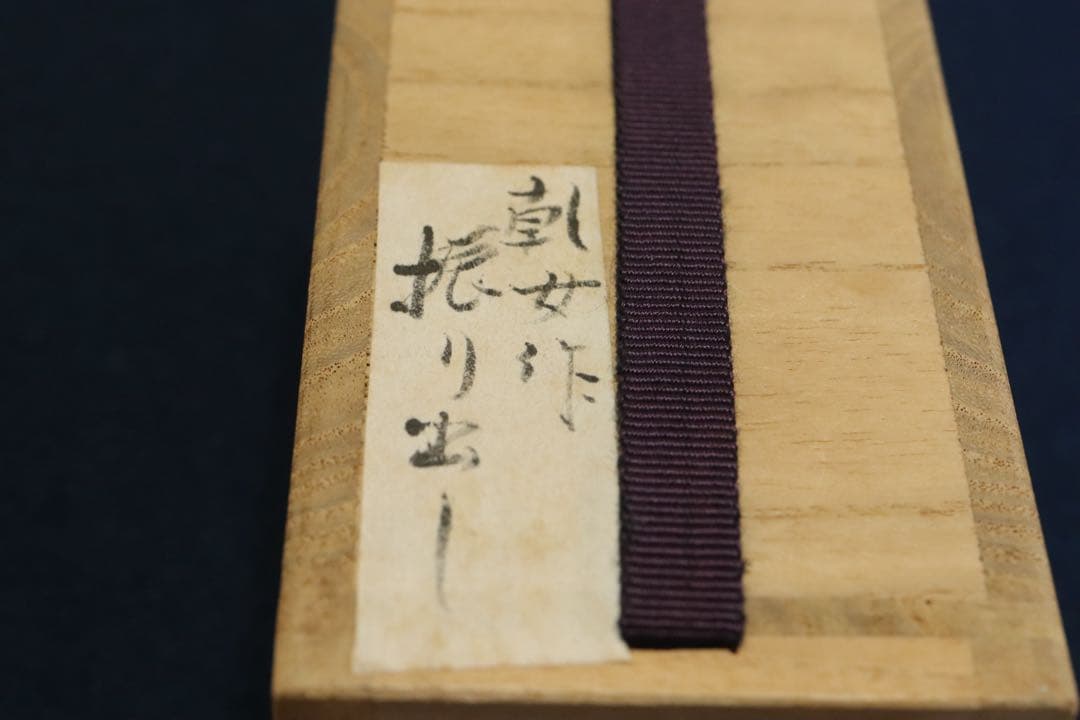 乾女作
振り出し